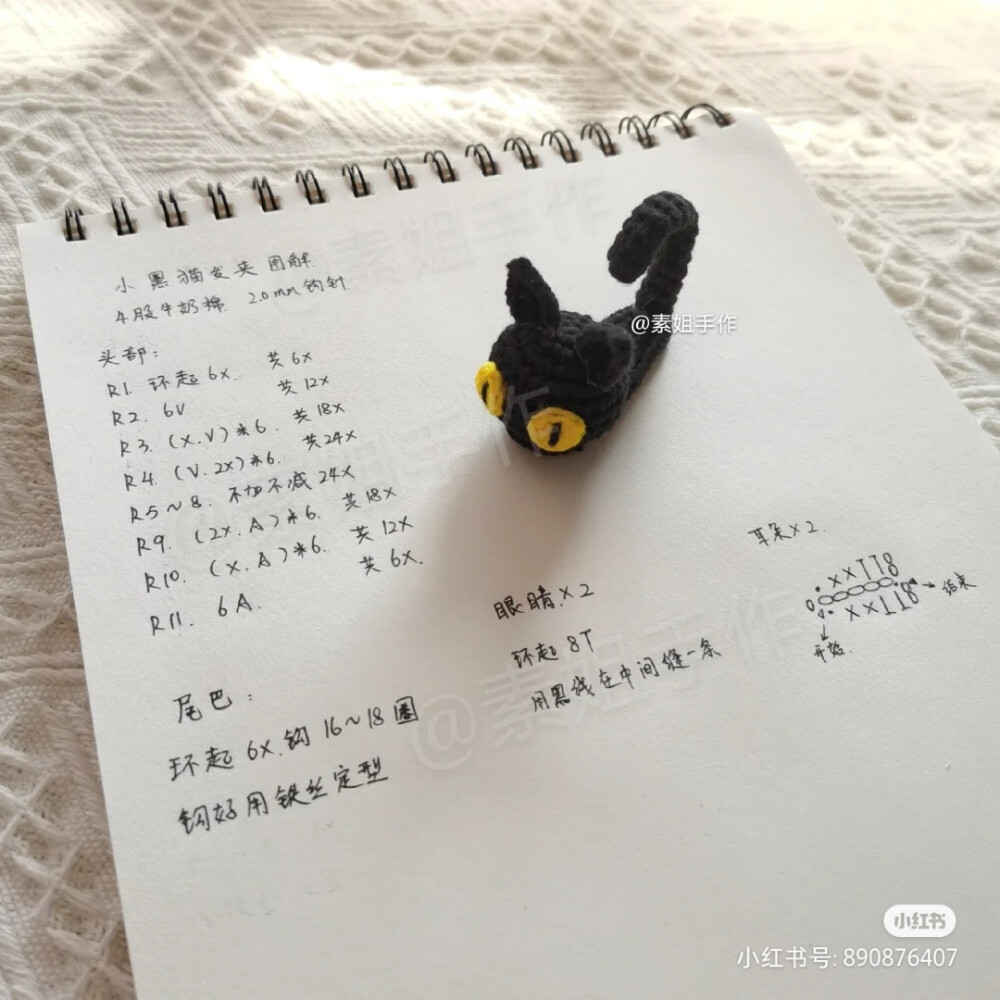 小黑猫发夹图解
4股牛奶棉 2.0mm钩针
头部：
R1. 环起6X. 共6X
R2. 6V 共12X
R3. (X.V)*6. 共18X
R4. (V.2X)*6. 共24X
R5~8. 不加不减24X
R9. (2X.A)*6. 共18X
R10. (X.A)*6. 共12X
R11. 6A. 共6X.
尾巴：
环起6X.钩16~18圈
钩好用铁丝定型
眼睛X2
环起8T
用黑线在中间缝一条
耳朵X2.
结束
开始.
@素姐手作
@素姐手作
@素姐手作
小红书
小红书号: 890876407